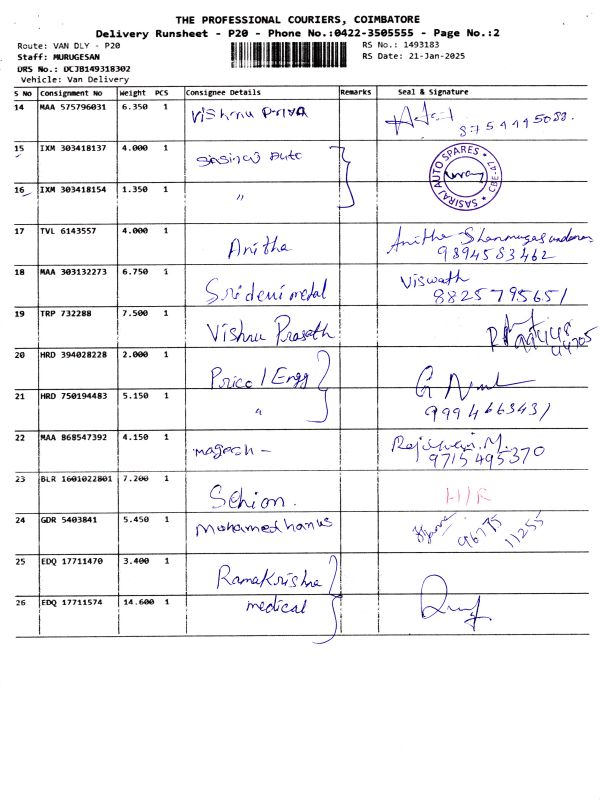 THE PROFESSIONAL COURIERS, COIMBATORE
Delivery Runsheet - P20 - Phone No.:0422-3505555 - Page No.:2
Route: VAN DLY - P20
RS No.: 1493183
Staff: MURUGESAN
RS Date: 21-Jan-2025
DRS No.: DCJB149318302
Vehicle: Van Delivery
S No Consignment No Weight PCS Consignee Details Remarks Seal & Signature
14 MAA 575796031 6.350 1 Vishnu Priya
15 IXM 303418137 4.000 1 Sasiraj Auto SASIRAJ AUTO SPARES CBE-47
16 IXM 303418154 1.350 1 "
17 TVL 6143557 4.000 1 Anitha Anitha Shanmugasundaram
9894583462
18 MAA 303132273 6.750 1 Sridevi metal Viswath
8825795651
19 TRP 732288 7.500 1 Vishnu Prasath
20 HRD 394028228 2.000 1 Pricol Engg
21 HRD 750194483 5.150 1 " 9994663431
22 MAA 868547392 4.150 1 magesh - Rajeswari.M.
9715495370
23 BLR 1601022801 7.200 1 Schion. H/R
24 GDR 5403841 5.450 1 Mohamed 96775
11255
25 EDQ 17711470 3.400 1 Ramakrishna
26 EDQ 17711574 14.600 1 medical